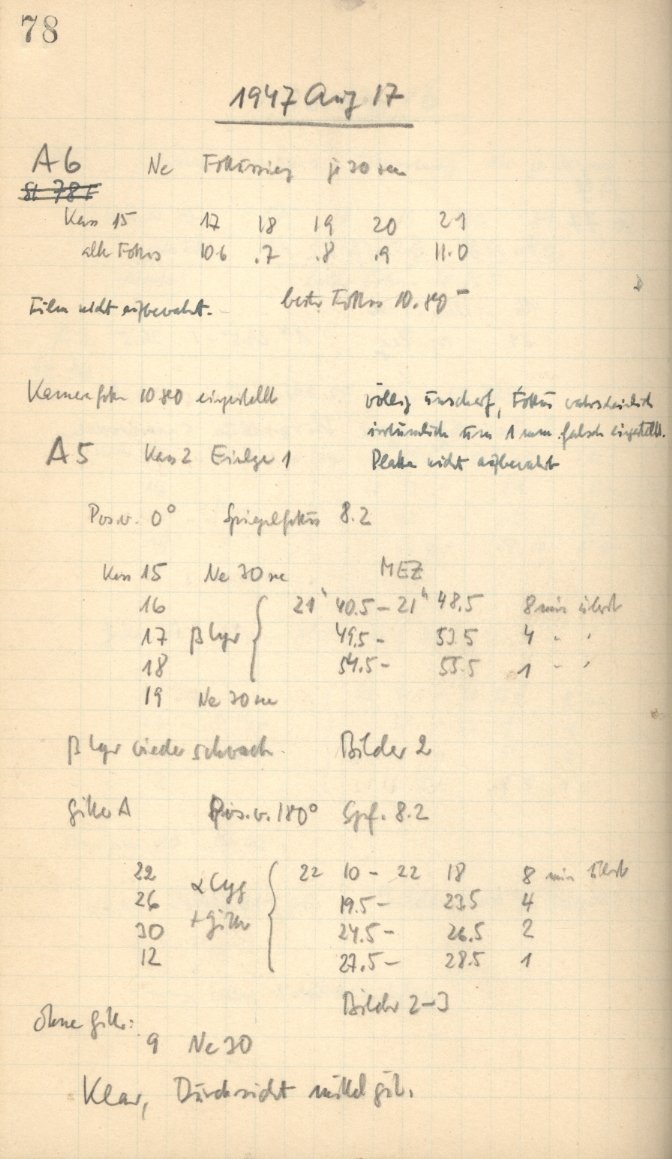 78
1947 Aug 17
A6 Ne Fokussierg je 30 sec
Kass 15 17 18 19 20 21
alte Fokus 10.6 .7 .8 .9 11.0
Film nicht aufbewahrt. bester Fokus 10.80
Kamerafokus 10.80 eingestellt völlig unscharf, Fokus wahrscheinlich
irrtümlich um 1 mm falsch eingestellt.
A5 Kass 2 Einlge 1 Platte nicht aufbewahrt
Pos.w. 0° Spiegelfokus 8.2
Kass 15 Ne 30 sec MEZ
16 21h 40.5 – 21h 48.5 8 min
17 β Lyr 49.5 – 53.5 4 " "
18 54.5 – 55.5 1 " "
19 Ne 30 sec
β Lyr wieder schwach. Bilder 2
Gitter A Pos.w. 180° Spf. 8.2
22 α Cyg 22 10 – 22 18 8 min
26 + Gitter 19.5 – 23.5 4
30 24.5 – 26.5 2
12 27.5 – 28.5 1
Bilder 2–3
Ohne Gitter:
9 Ne 30
Klar, Durchsicht mittel gut.